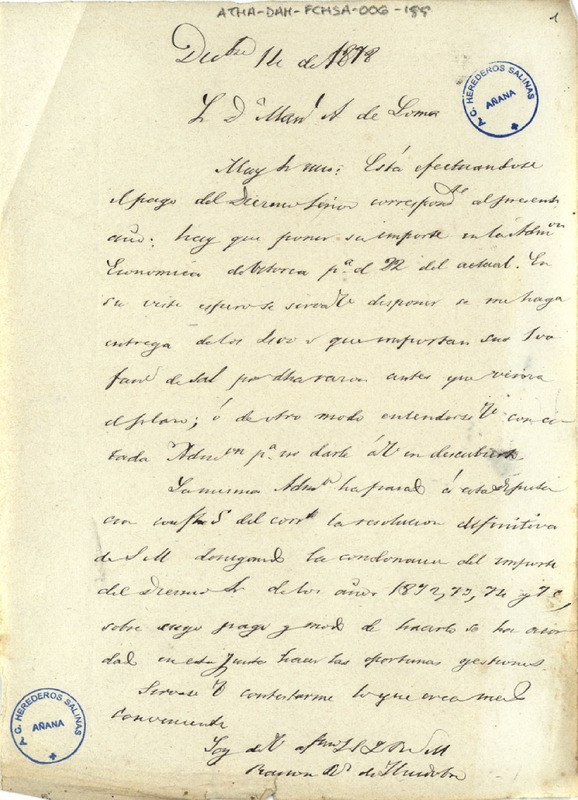 ATHA-DAH-FCHSA-006-199
1
Dicbre 14 de 1878
A.C. HEREDEROS SALINAS
AÑANA
Sr Dn Manl A de Loma
Muy Sr mio: Está efectuandose
el pago del Diezmo Señor correspondte al presente
año; hay que poner su importe en la Admon
Economica de Vitoria pa el 22 del actual. En
su vista espero se servirá V disponer se me haga
entrega de los que importan sus
fans de sal por dha razon antes que venza
el plazo; ó de otro modo entenderse V con ci-
tada Admon pa no darle á V en descubierto
La misma Admon ha pasado á esta
con fha 5 del corrte la resolucion definitiva
de S M denegando la condonacion del importe
del Diezmo Sr de los años 1872, 73, 74 y 75,
sobre cuyo pago y modo de hacerlo se ha acor
dado en esta Junta hacer las oportunas gestiones.
Sirvase V contestarme lo que crea mas
conveniente
Soy de V afmo S S Q B S M
Ramon Rz de Huidobro
A.C. HEREDEROS SALINAS
AÑANA